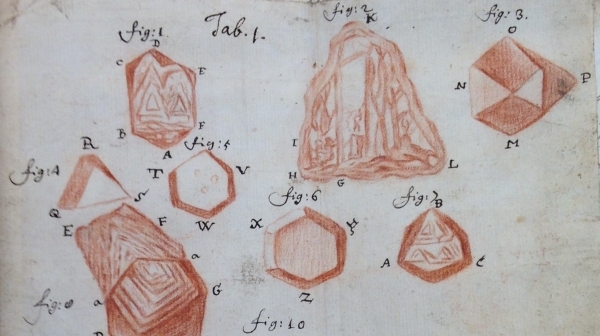 fig: 1
Tab. 1.
fig: 2
fig: 3.
D
C
E
B
F
A
K
I
H
G
L
O
N
P
M
fig: 4
R
Q
S
fig: 5
T
V
W
fig: 6
X
Z
fig: 7
B
A
C
E
F
a
a
G
fig: 10